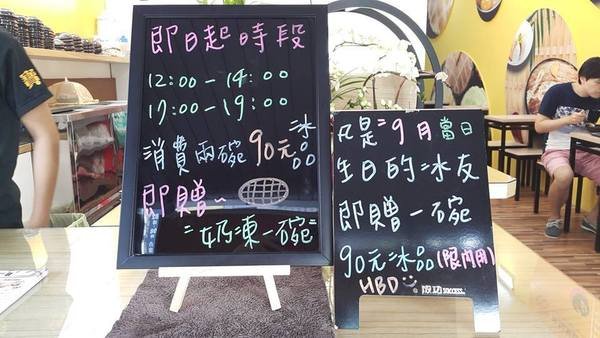 即日起時段
12:00-14:00
17:00-19:00
消費兩碗90元冰品
即贈~
"奶凍一碗"
凡是"9月當日
生日的冰友
即贈一碗
90元冰品(限內用)
HBD
成功 SUCCESS
寶